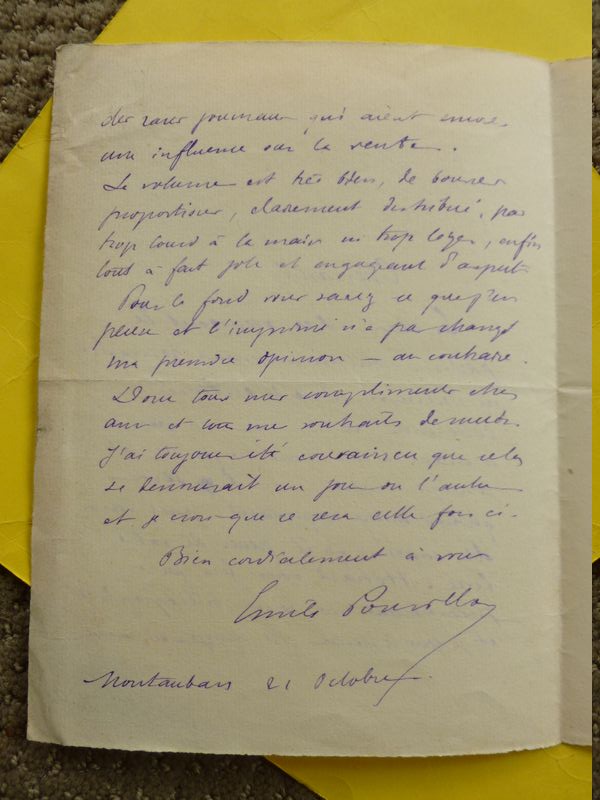 des rares journaux qui aient encore
une influence sur la vente.
Le volume est très bien, de bonnes
proportions, clairement distribué, pas
trop lourd à la main ni trop léger, enfin
tout à fait joli et engageant d'aspect.
Pour le fond vous savez ce que j'en
pense et l'imprimé n'a pas changé
ma première opinion — au contraire.
Donc tous mes compliments cher
ami et tous mes souhaits de succès.
J'ai toujours été convaincu que cela
se dénouerait un jour ou l'autre
et je crois que ce sera cette fois ci.
Bien cordialement à vous
Emile Pouvillon
Montauban 21 Octobre.